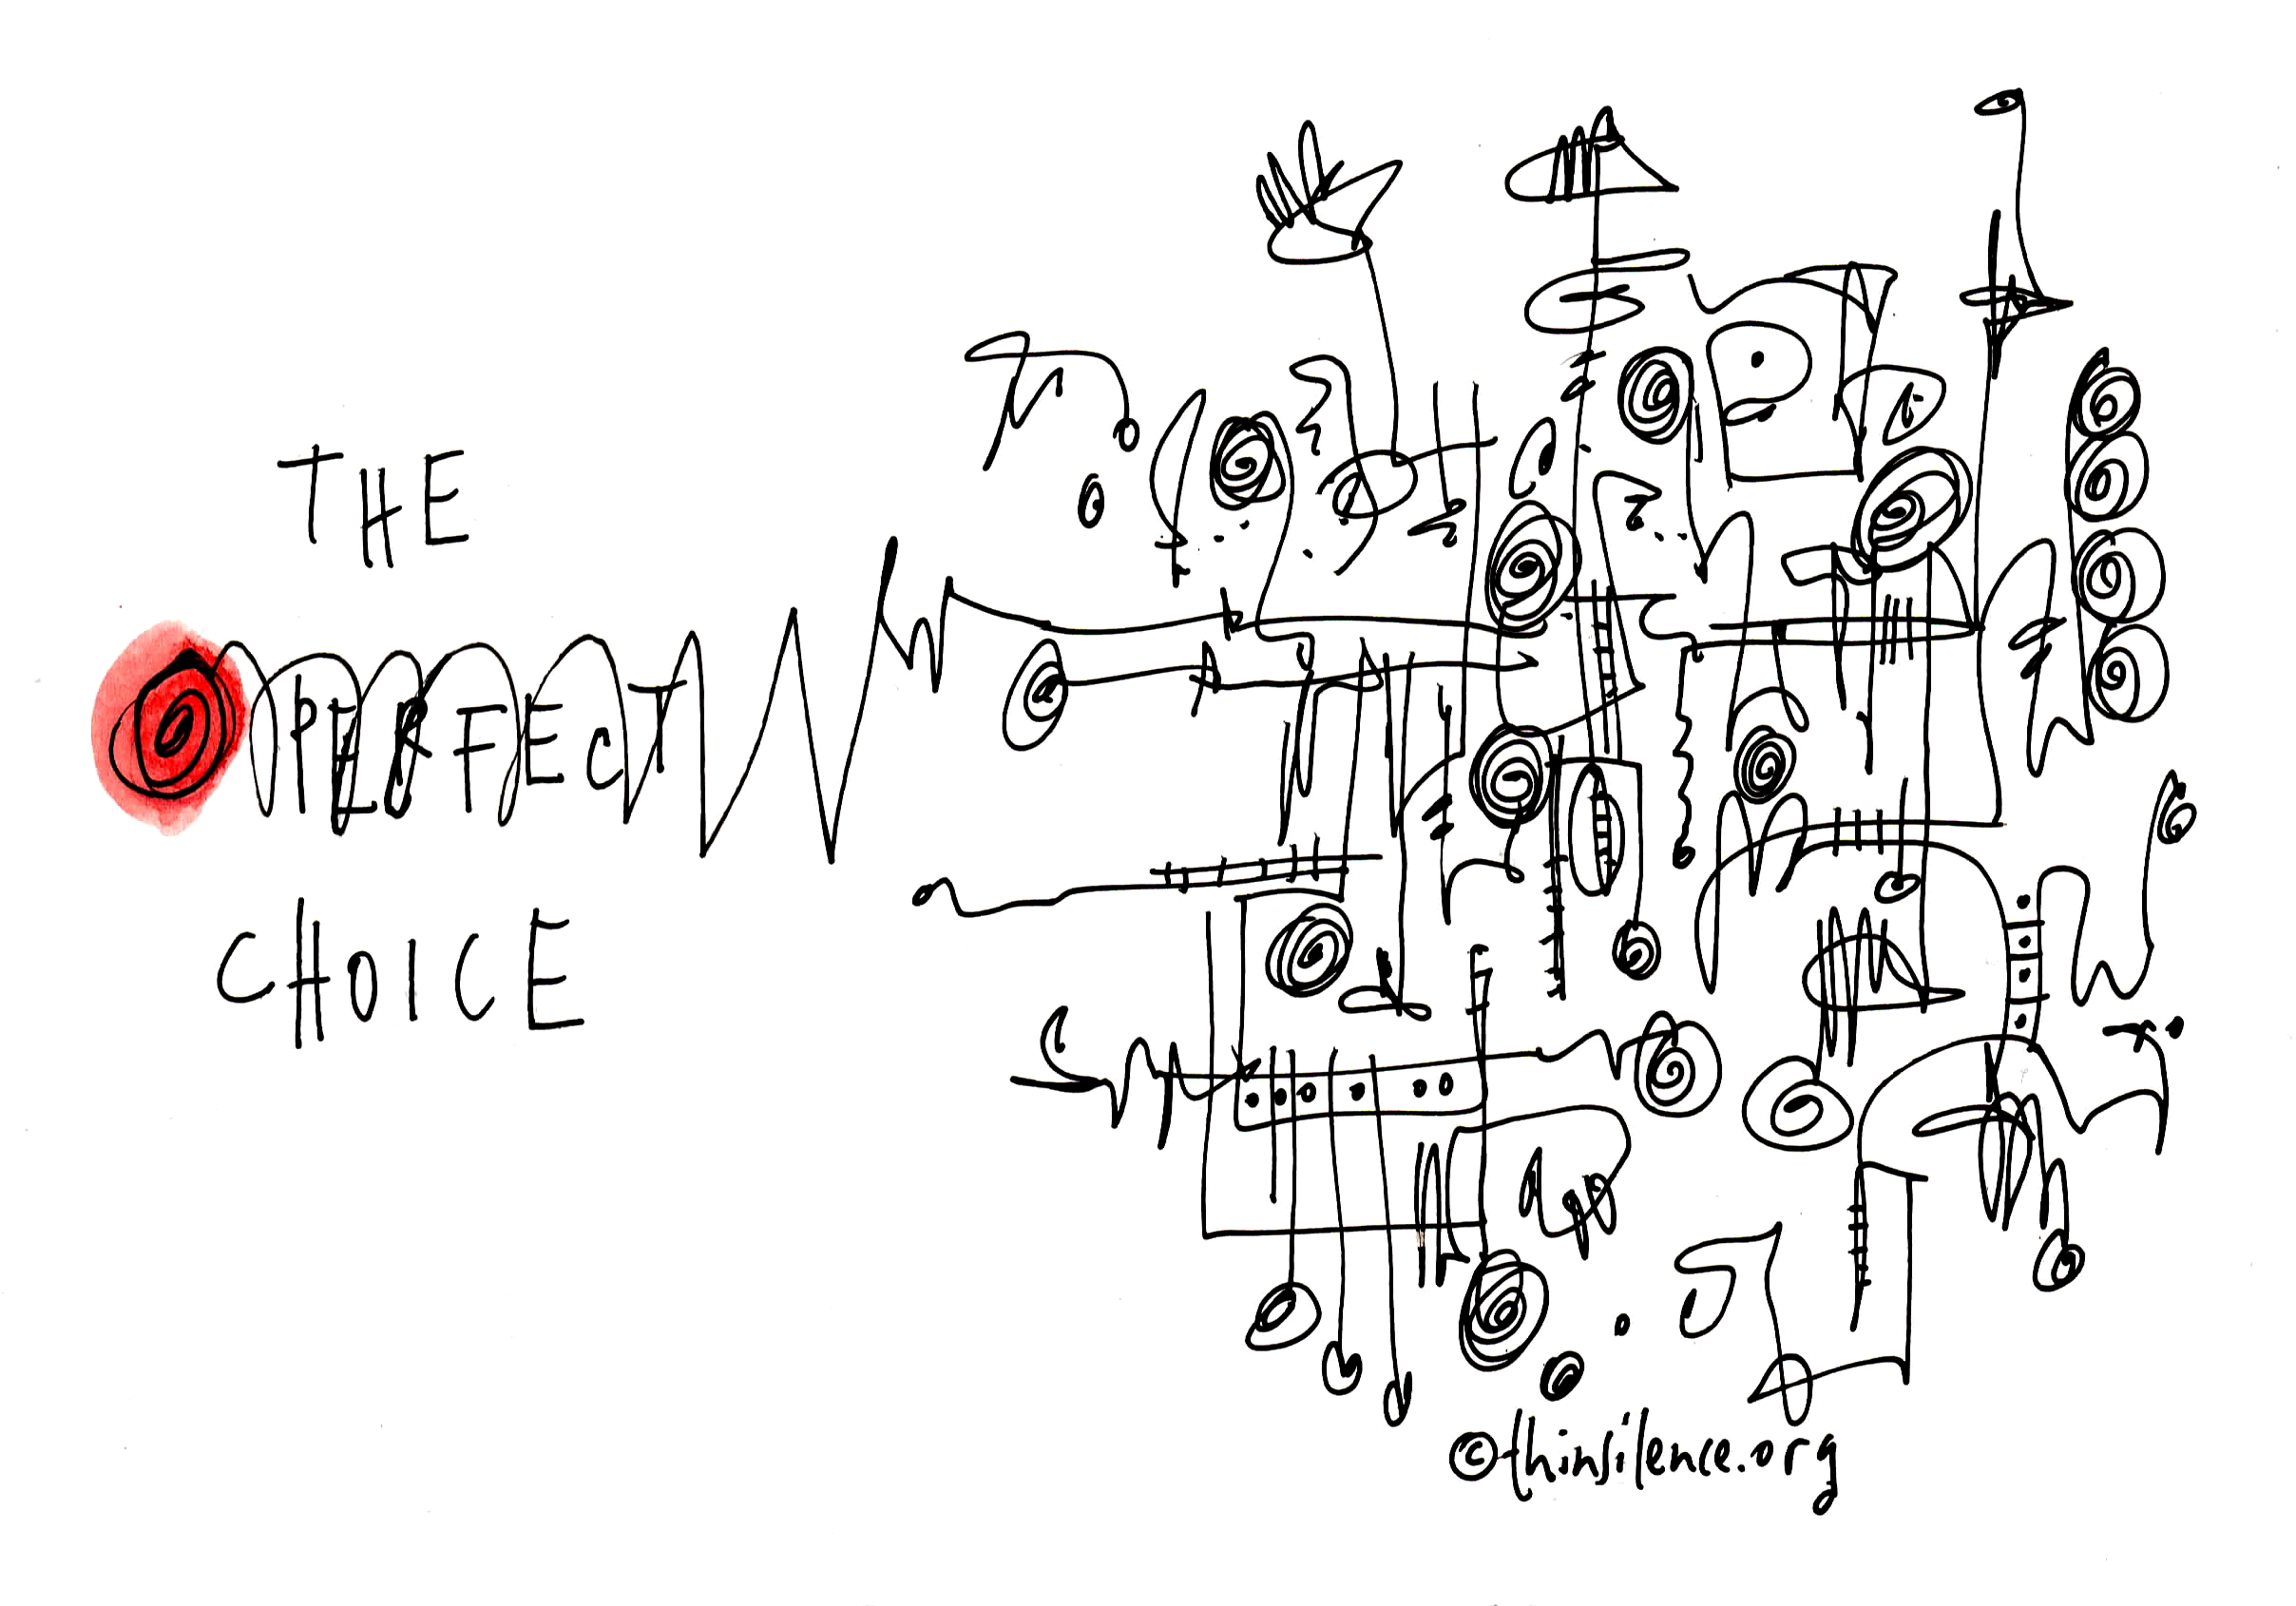 THE
PERFECT
CHOICE
©thinsilence.org